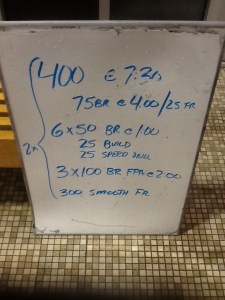 400 @ 7:30
75 BR @ 4:00/25 FR
6x50 BR @ 1:00
25 BUILD
25 SPEED DRILL
2x
3x100 BR FPR @ 2:00
300 SMOOTH FR